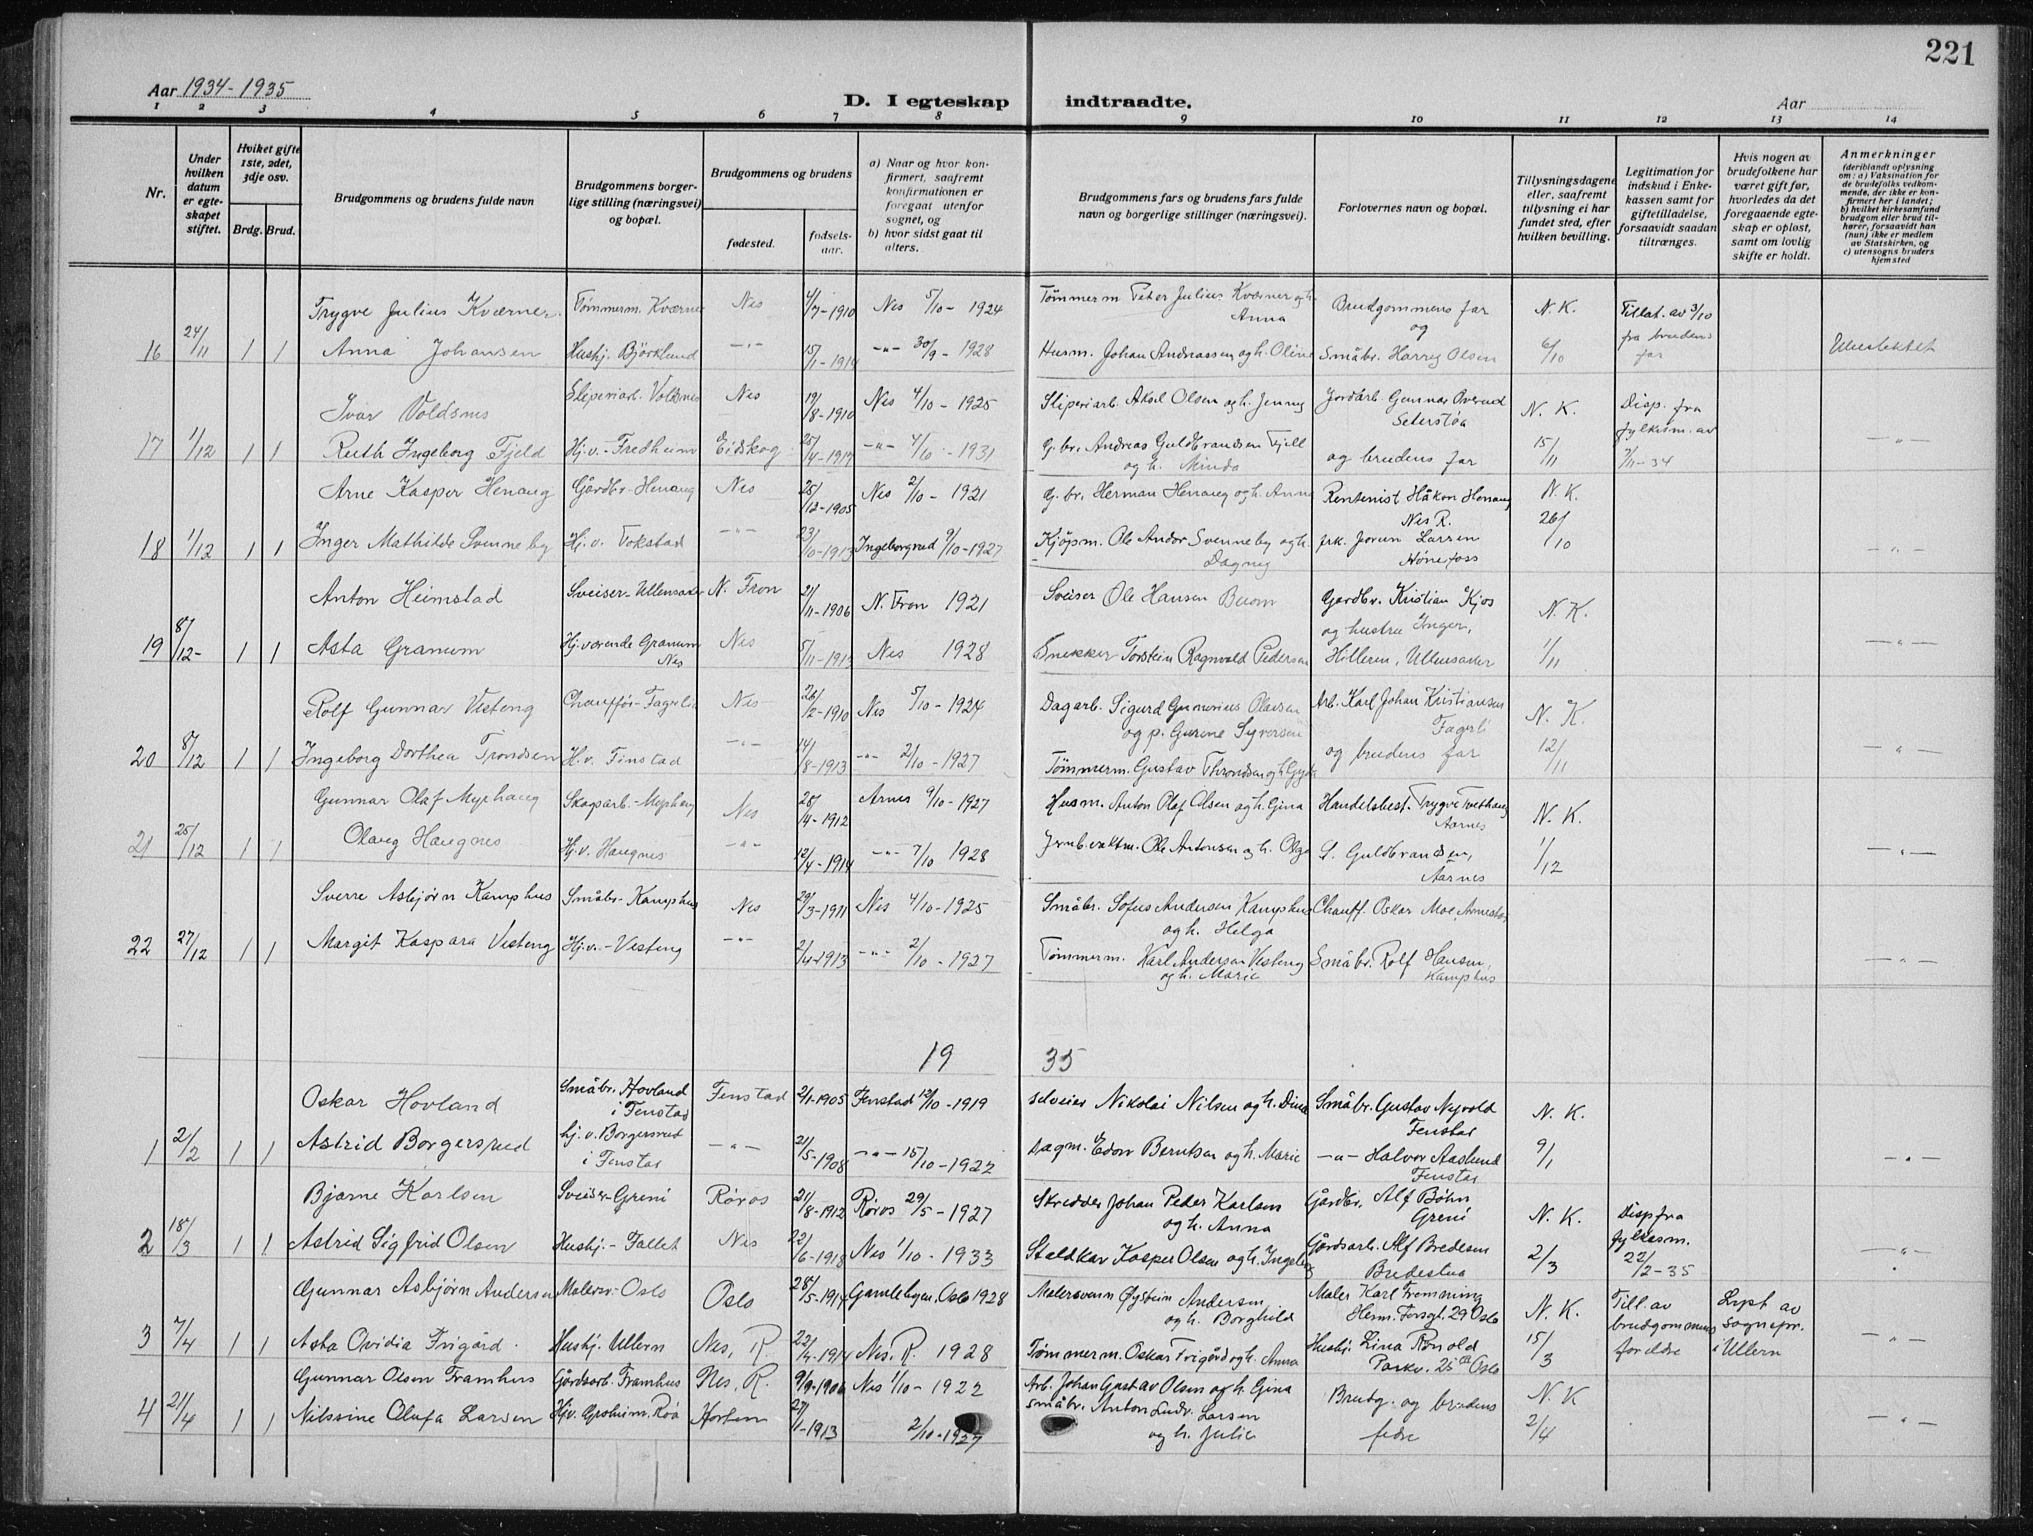 221
Aar 1934-1935
D. I egteskap indtraadte.
Aar
1 2 3 4 5 6 7 8 9 10 11 12 13 14
Nr.
Under hvilken datum er egteskapet stiftet.
Hviket gifte 1ste, 2det, 3dje osv.
Brdg. Brud.
Brudgommens og brudens fulde navn
Brudgommens borgerlige stilling (næringsvei) og bopæl.
Brudgommens og brudens
fødested.
fødselsaar.
a) Naar og hvor konfirmert, saafremt konfirmationen er foregaat utenfor sognet, og
b) hvor sidst gaat til alters.
Brudgommens fars og brudens fars fulde navn og borgerlige stillinger (næringsvei).
Forlovernes navn og bopæl.
Tillysningsdagene eller, saafremt tillysning ei har fundet sted, efter hvilken bevilling.
Legitimation for indskud i Enkekassen samt for giftetilladelse, forsaavidt saadan tiltrænges.
Hvis nogen av brudefolkene har været gift før, hvorledes da det foregaaende egteskap er opløst, samt om lovlig skifte er holdt.
Anmerkninger
(deriblandt oplysning om: a) Vaksination for de brudefolks vedkommende, der ikke er konfirmert her i landet; b) hvilket kirkesamfund brudgom eller brud tilhører, forsaavidt han (hun) ikke er medlem av Statskirken, og c) utensogns bruders hjemsted
Trygve Julius Kværner Tømmerm. Kværner Nes 4/7-1910 Nes 5/10-1924 Tømmerm Peter Julius Kværner og h. Anna Brudgommens far og N. K. Tillat. av 3/10 fra brudens far
16 24/11 1 1 Anna Johansen Hushj. Björklund -"- 15/1-1914 -"- 30/9-1928 Husm. Johan Andreassen og h. Oline Småbr. Harry Olsen 6/10 Ubeslektet
Ivar Voldsnes Sliperiarb. Voldsnes Nes 19/8-1910 Nes 4/10-1925 Sliperiarb. Aksel Olsen og h. Jenny Jordarb. Gunnar Overud Seterstøa N. K. Disp. fra fylkesm. av 7/11-34
17 1/12 1 1 Ruth Ingeborg Fjeld Hj.v.-Fredheim Eidskog 25/4-1917 -"- 4/10-1931 G. br. Andreas Guldbrandsen Fjell og h. Minda og brudens far 15/11 -"-
Arne Kasper Henaug Gårdbr. Henaug Nes 25/12-1905 Nes 2/10-1921 G. br. Herman Henaug og h. Anna Rentenist Håkon Henaug Nes R. N. K.
18 1/12 1 1 Inger Mathilde Svenneby Hj. v. Tokstad -"- 23/10-1913 Ingeborgrud 9/10-1927 Kjøpm. Ole Andor Svenneby og h. Dagny frk. Jorun Larsen Hönefoss 26/10 -"-
Anton Heimstad Sveiser-Ullensaker N. Fron 21/11-1906 N. Fron 1921 Sveiser Ole Hansen Buom Gardbr. Kristian Kjos og hustru Inger, N. K.
19 8/12- 1 1 Asta Granum Hj. værende Granum Nes Nes 5/11-1913 Nes 1928 Snekker Torstein Ragnvald Pedersen Hilleren, Ullensaker 1/11 -"-
Rolf Gunnar Vesteng Chauffør-Fagerli Nes 26/2-1910 Nes 5/10-1924 Dagarb. Sigurd Gunerius Olausen og p. Gurine Syversen Arb. Karl Johan Kristiansen Fagerli N. K.
20 8/12 1 1 Ingeborg Dorthea Trondsen H.v. Finstad -"- 14/8-1913 -"- 2/10-1927 Tømmerm. Gustav Throndsen og h Gyda og brudens far 12/11 -"-
Gunnar Olaf Myrhaug Skogarb.-Myrhaug Nes 28/4-1912 Arnes 9/10-1927 Husm. Anton Olaf Olsen og h. Gina Handelsbest. Trygve Tvethaug Aarnes N. K.
21 25/12 1 1 Olaug Haugnes Hj.v. Haugnes -"- 12/4-1914 -"- 7/10 1928 Jernb.vaktm. Ole Antonsen og h. Olga S. Guldbrandsen, Aarnes 1/12 -"-
Sverre Asbjørn Kamphus Småbr-Kamphus Nes 29/3-1911 Nes 4/10-1925 Småbr. Sofus Andersen Kamphus og h. Helga Chauff. Oskar Moe, Arnestøa
22 27/12 1 1 Margit Kaspara Vesteng Hj.v.-Vesteng -"- 2/4-1913 -"- 2/10-1927 Tømmerm. Karl Andersen Vesteng og h. Marie Småbr. Rolf Hansen, Kamphus -"-
19 35
Oskar Hovland Småbr. Hovland i Fenstad Fenstad 2/1-1905 Fenstad 12/10-1919 Sveiser Nikolai Nilsen og h. Dina Småbr. Gustav Nyvold Fenstad N. K.
1 2/2 1 1 Astrid Borgersrud hj. v. Borgersrud i Fenstad -"- 21/5-1908 -"- 15/10-1922 Dagm. Edvv Berntsen og h. Marie -"- Halvor Aaslund Fenstad 9/1 -"-
Bjarne Karlsen Sveiser-Greni Røros 21/8-1912 Røros 29/5-1927 Skredder Johan Peder Karlsen og h. Anna Gårdbr. Alf Bøhn Greni N. K. Disp fra fylkesm. 22/2-35
2 18/3 1 1 Astrid Sigfrid Olsen Hushj.-Fallet Nes 22/6-1918 Nes 1/10-1933 Staldkar Kasper Olsen og h. Ingeborg Gårdsarb. Alf Bredesen Bredestua 2/3 -"-
Gunnar Asbjørn Andersen Malersv.-Oslo Oslo 28/5-1914 Gamlebyen, Oslo 1928 Malersvenn Øystein Andersen og h. Borghild Maler Karl Fremming Herm. Forsgt. 29 Oslo N. K. Till. av brudgommens foreldre Lyst av sognepr. i Ullern
3 7/4 1 1 Asta Ovidia Frigård Hushj. Ullern Nes, R. 22/4-1914 Nes, R. 1928 Tømmerm. Oskar Frigård og h. Anna Hushj. Lina Rönold Parkv. 25 Oslo 15/3 -"-
Gunnar Olsen Framhus Gårdsarb. Framhus Nes, R. 9/9-1906 Nes 1/10-1922 Arb. Johan Gustav Olsen og h. Gina Brudg. og brudens fedre N. K
4 21/4 1 1 Nilssine Olufa Larsen Hjv. Groheim, Röa Horten 27/1-1913 2/10-1927 Småbr. Anton Ludv. Larsen og h. Julie 2/4 -"-